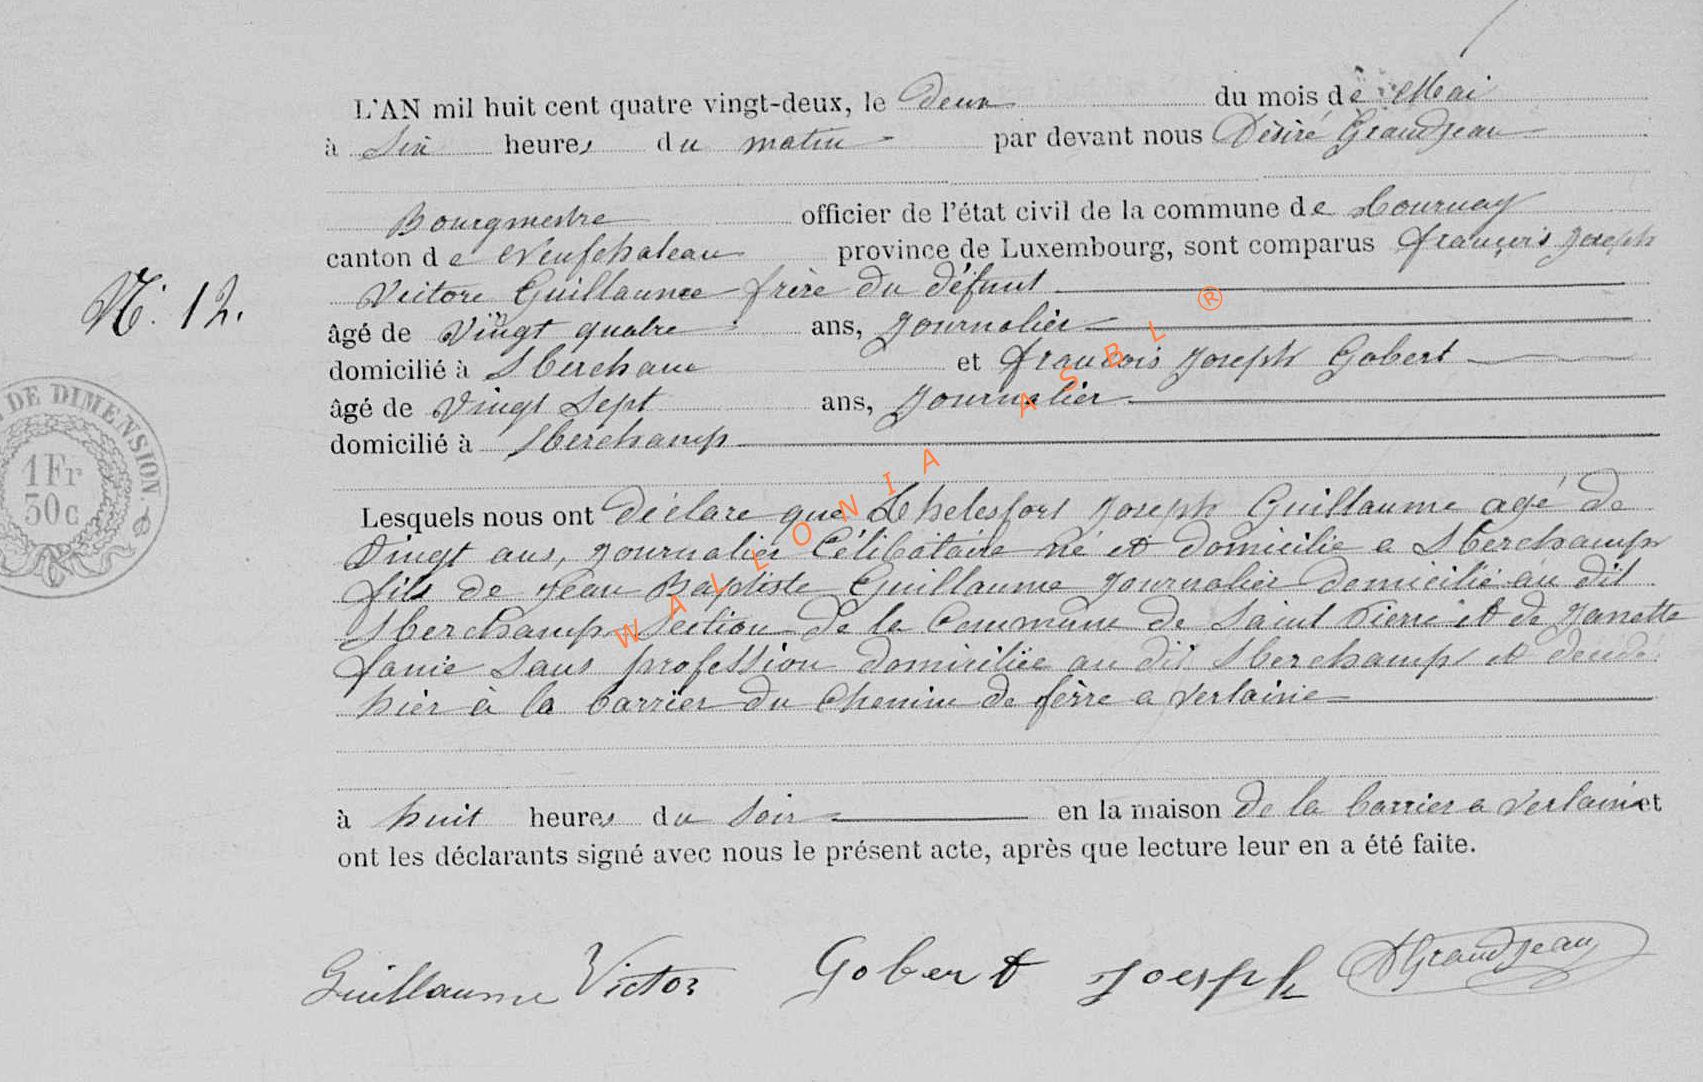 L'AN mil huit cent quatre vingt-deux, le Deux du mois de Mai
à Six heures du matin par devant nous Désiré Grandjean
Bourgmestre officier de l'état civil de la commune de Tournay
canton de Neufchateau province de Luxembourg, sont comparus françois Joseph
Victore Guillaume frère du défunt
N. 12.
âgé de Vingt quatre ans, Journalier
domicilié à Sberchamp et francois Joseph Gobert
âgé de Vingt Sept ans, Journalier
domicilié à Sberchamp
DE DIMENSION
1 Fr
30 c
Lesquels nous ont déclare que Joseph Guillaume agé de
Vingt ans, journalier Célibataire né et domicilie a Sberchamp
fils de Jean Baptiste Guillaume Journalier domicilié au dit
Sberchamp Section de la Commune de Saint Pierre et de Janette
Sans profession domiciliée au dit Sberchamp et décédé
hier à la barrier du Chemin de fèrre a Verlaine
à huit heures du Soir en la maison De la barrier a Verlaine et
ont les déclarants signé avec nous le présent acte, après que lecture leur en a été faite.
Guillaume Victor Gobert Joesph DGrandjean
WALLONIA ASBL ®